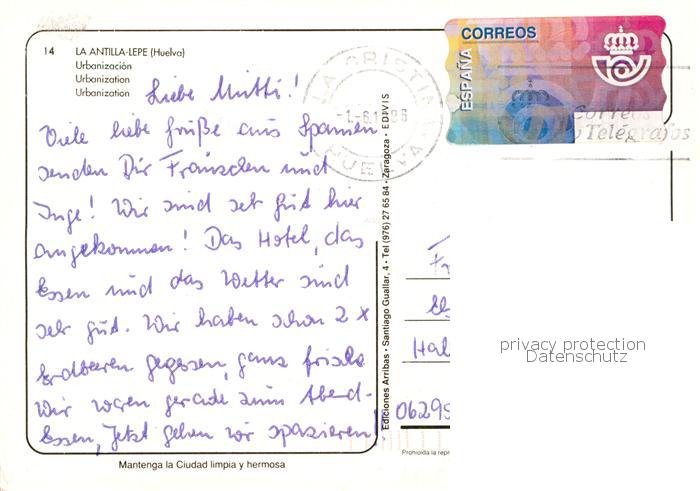 14 LA ANTILLA-LEPE (Huelva)
Urbanización
Urbanization
Urbanization
Liebe Mutti!
Viele liebe Grüße aus Spanien
senden Dir Fränzchen und
Inge! Wir sind seh gut hier
angekommen! Das Hotel, das
Essen und das Wetter sind
seh gut. Wir haben schon 2 x
Erdbeeren gegessen, ganz frisch
Wir waren gerade zum Abend-
Essen, Jetzt gehen wir spazieren!
Mantenga la Ciudad limpia y hermosa
Ediciones Arribas - Santiago Guallar, 4 - Tel (976) 27 65 84 - Zaragoza - EDIVIS
LA CRISTIN
-1.-6.1996
HUELVA
CORREOS
ESPAÑA
Correos
Telégrafos
Hal
0629
Prohibida la repr
privacy protection
Datenschutz